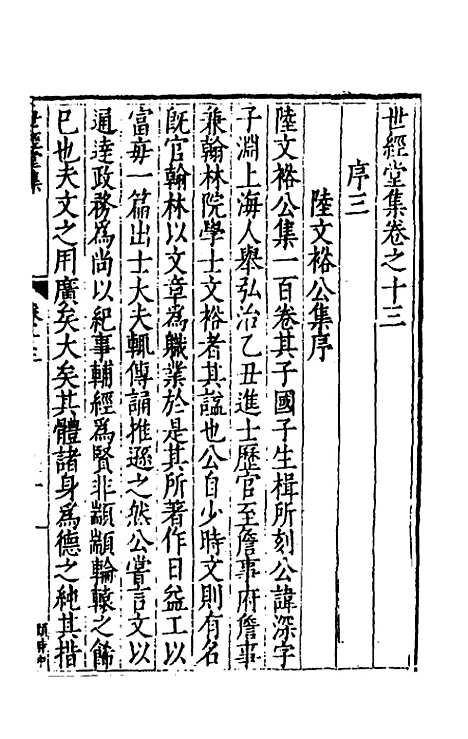 世經堂集卷之十三
序三
陸文裕公集序
陸文裕公集一百卷其子國子生楫所刻公諱深字
子淵上海人舉弘治乙丑進士歷官至詹事府詹事
兼翰林院學士文裕者其謚也公自少時文則有名
旣官翰林以文章爲職業於是其所著作日益工以
富毎一篇出士大夫輒傳誦推遜之然公嘗言文以
通達政務爲尚以紀事輔經爲賢非顓顓輪轅之飾
已也夫文之用廣矣大矣其體諸身爲德之純其措
世經堂集
卷十三
一